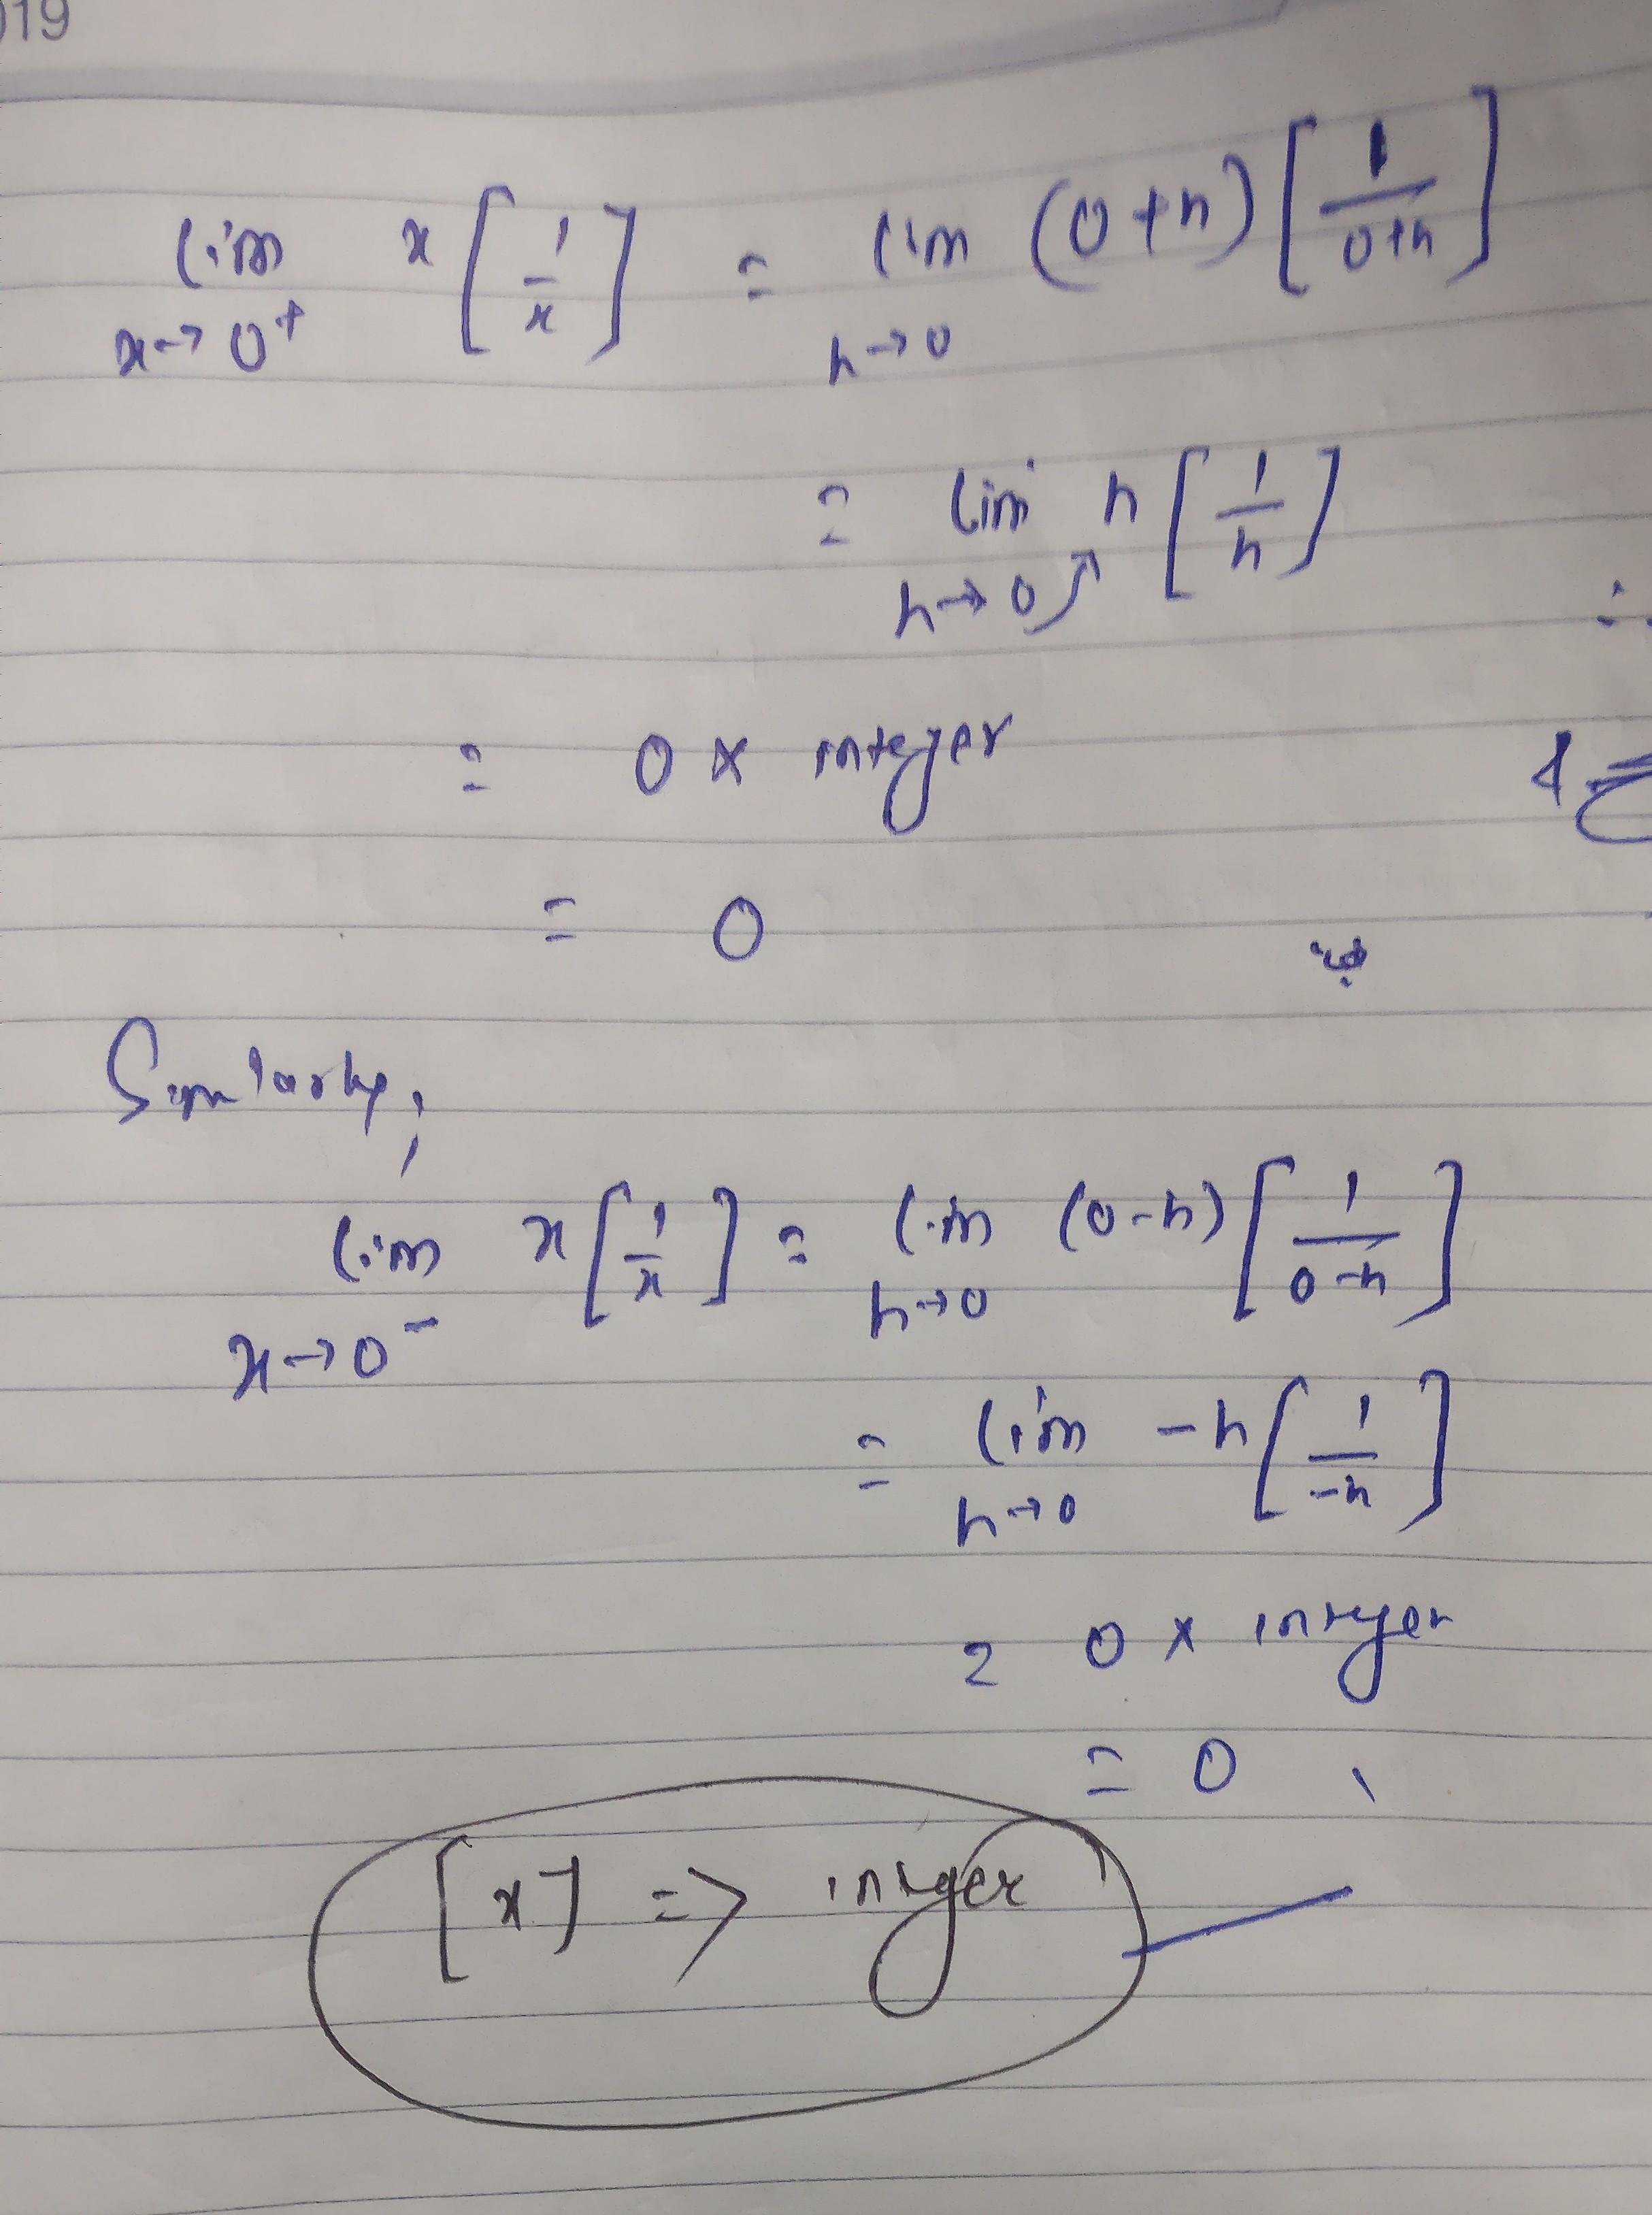 019
lim x→0⁺ x[1/x] = lim h→0 (0+h)[1/0+h]
= lim h→0 h[1/h]
∴
= 0 × integer
= 0
Similarly,
lim x→0⁻ x[1/x] = lim h→0 (0-h)[1/0-h]
= lim h→0 -h[1/-h]
= 0 × integer
= 0
[x] => integer